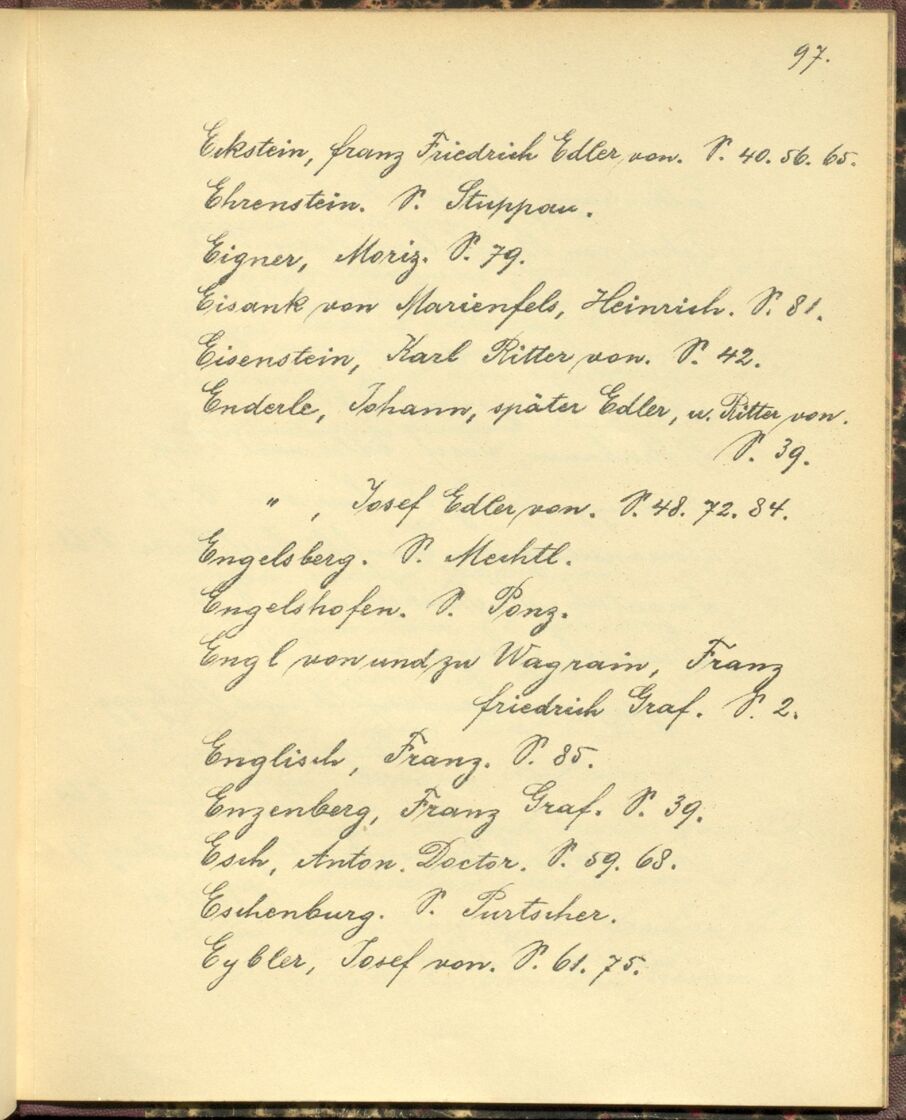 97.
Eckstein, Franz Friedrich Edler von. S. 40. 56. 65.
Ehrenstein. S. Stuppau.
Eigner, Moriz. S. 79.
Eisank von Marienfels, Heinrich. S. 81.
Eisenstein, Karl Ritter von. S. 42.
Enderle, Johann, später Edler, u. Ritter von.
S. 39.
" , Josef Edler von. S. 48. 72. 84.
Engelsberg. S. Mechtl.
Engelshofen. S. Ponz.
Engl von und zu Wagrain, Franz
friedrich Graf. S. 2.
Englisch, Franz. S. 85.
Enzenberg, Franz Graf. S. 39.
Esch, Anton. Doctor. S. 59. 68.
Eschenburg. S. Purtscher.
Eybler, Josef von. S. 61. 75.